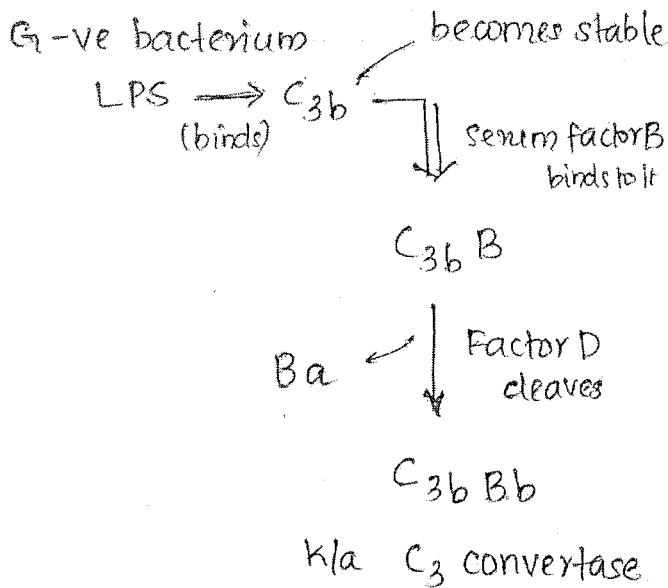 G-ve bacterium
becomes stable
LPS → C3b
(binds)
serum factor B
binds to it
C3b B
Ba
Factor D
cleaves
C3b Bb
k/a C3 convertase